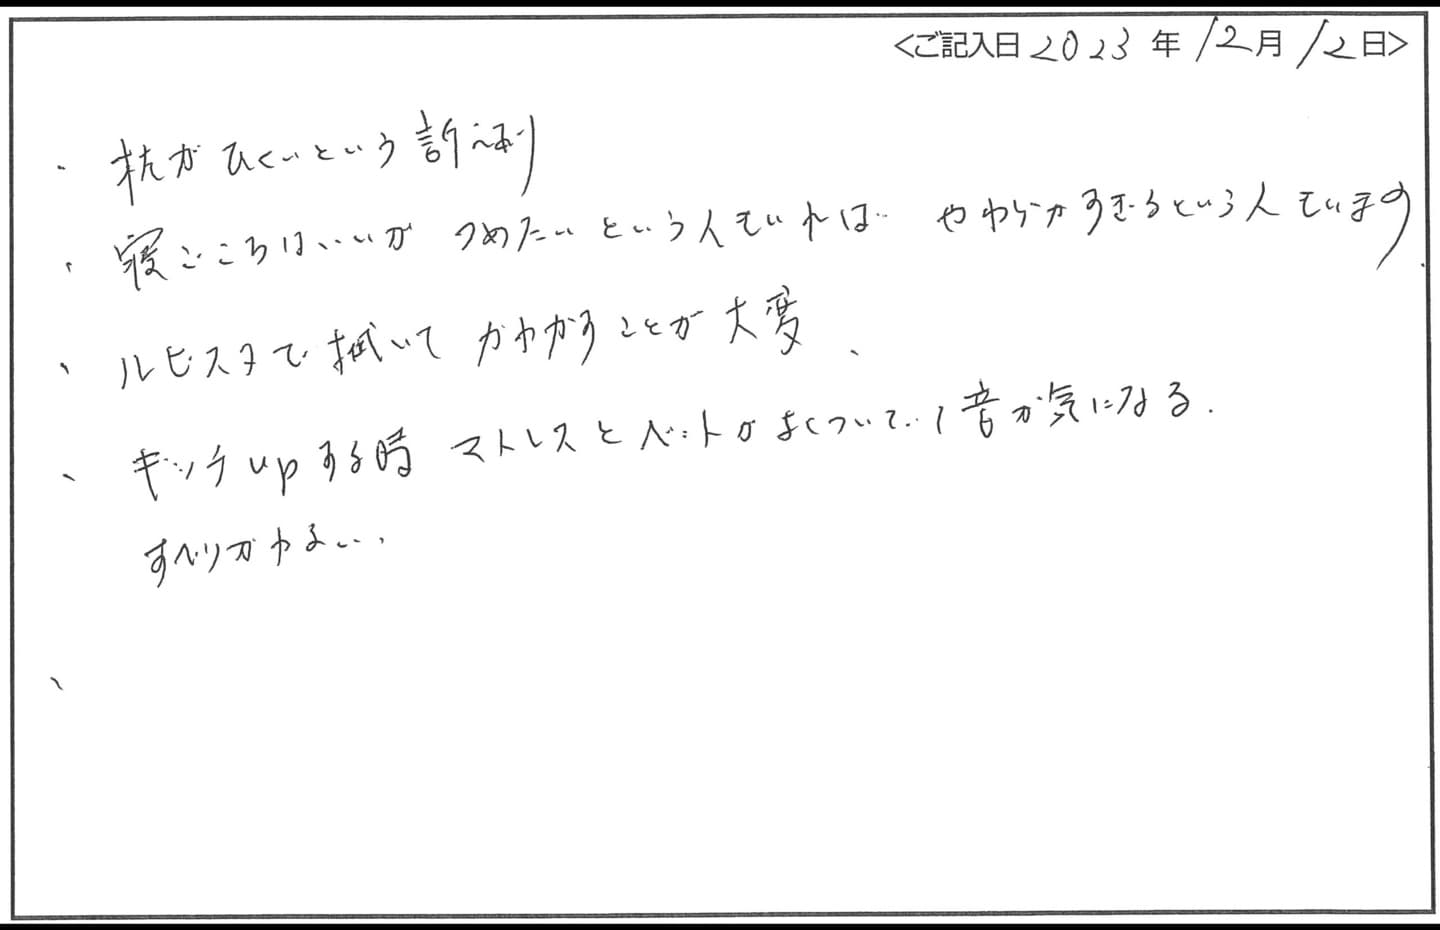 <ご記入日 2023年 12月 12日>
・ 枕がひくいという評判
・ 寝ごこちはいいが つめたいという人もいれば やわらかすぎるという人もいます.
・ ルビスタで拭いて かわかすことが大変、
・ ギッチupする時 マトレスとベットが よくついていて 音が気になる.
すべりがわるい.
、